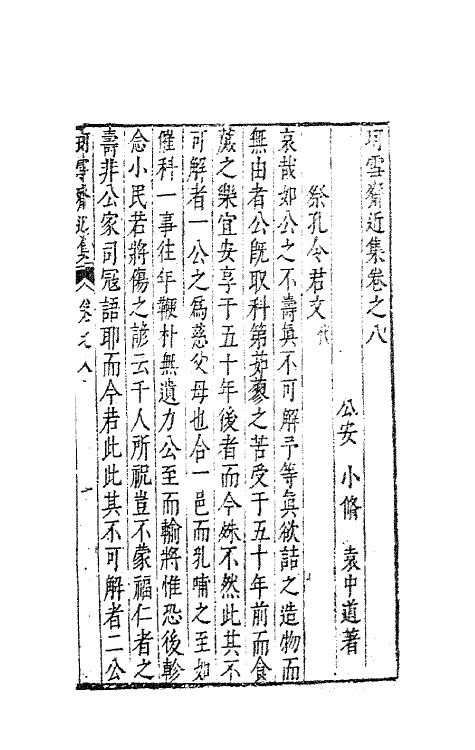 珂雪齋近集卷之八
公安 小脩 袁中道著
祭孔令君文代
哀哉如公之不壽眞不可解予等眞欲詰之造物而
無由者公旣取科第茹蓼之苦受于五十年前而食
蔗之樂宜安享于五十年後者而今殊不然此其不
可解者一公之爲慈父母也合一邑而乳哺之至如
催科一事往年鞭朴無遺力公至而輸將惟恐後軫
念小民若將傷之諺云千人所祝豈不蒙福仁者之
壽非公家司冦語耶而今若此此其不可解者二公
珂雪齋近集 卷之八 一